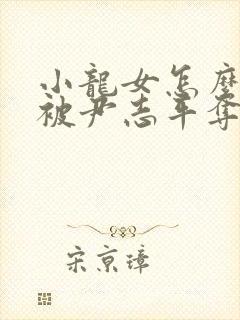 小龍女怎麼
被尹志平奪
宋京璋